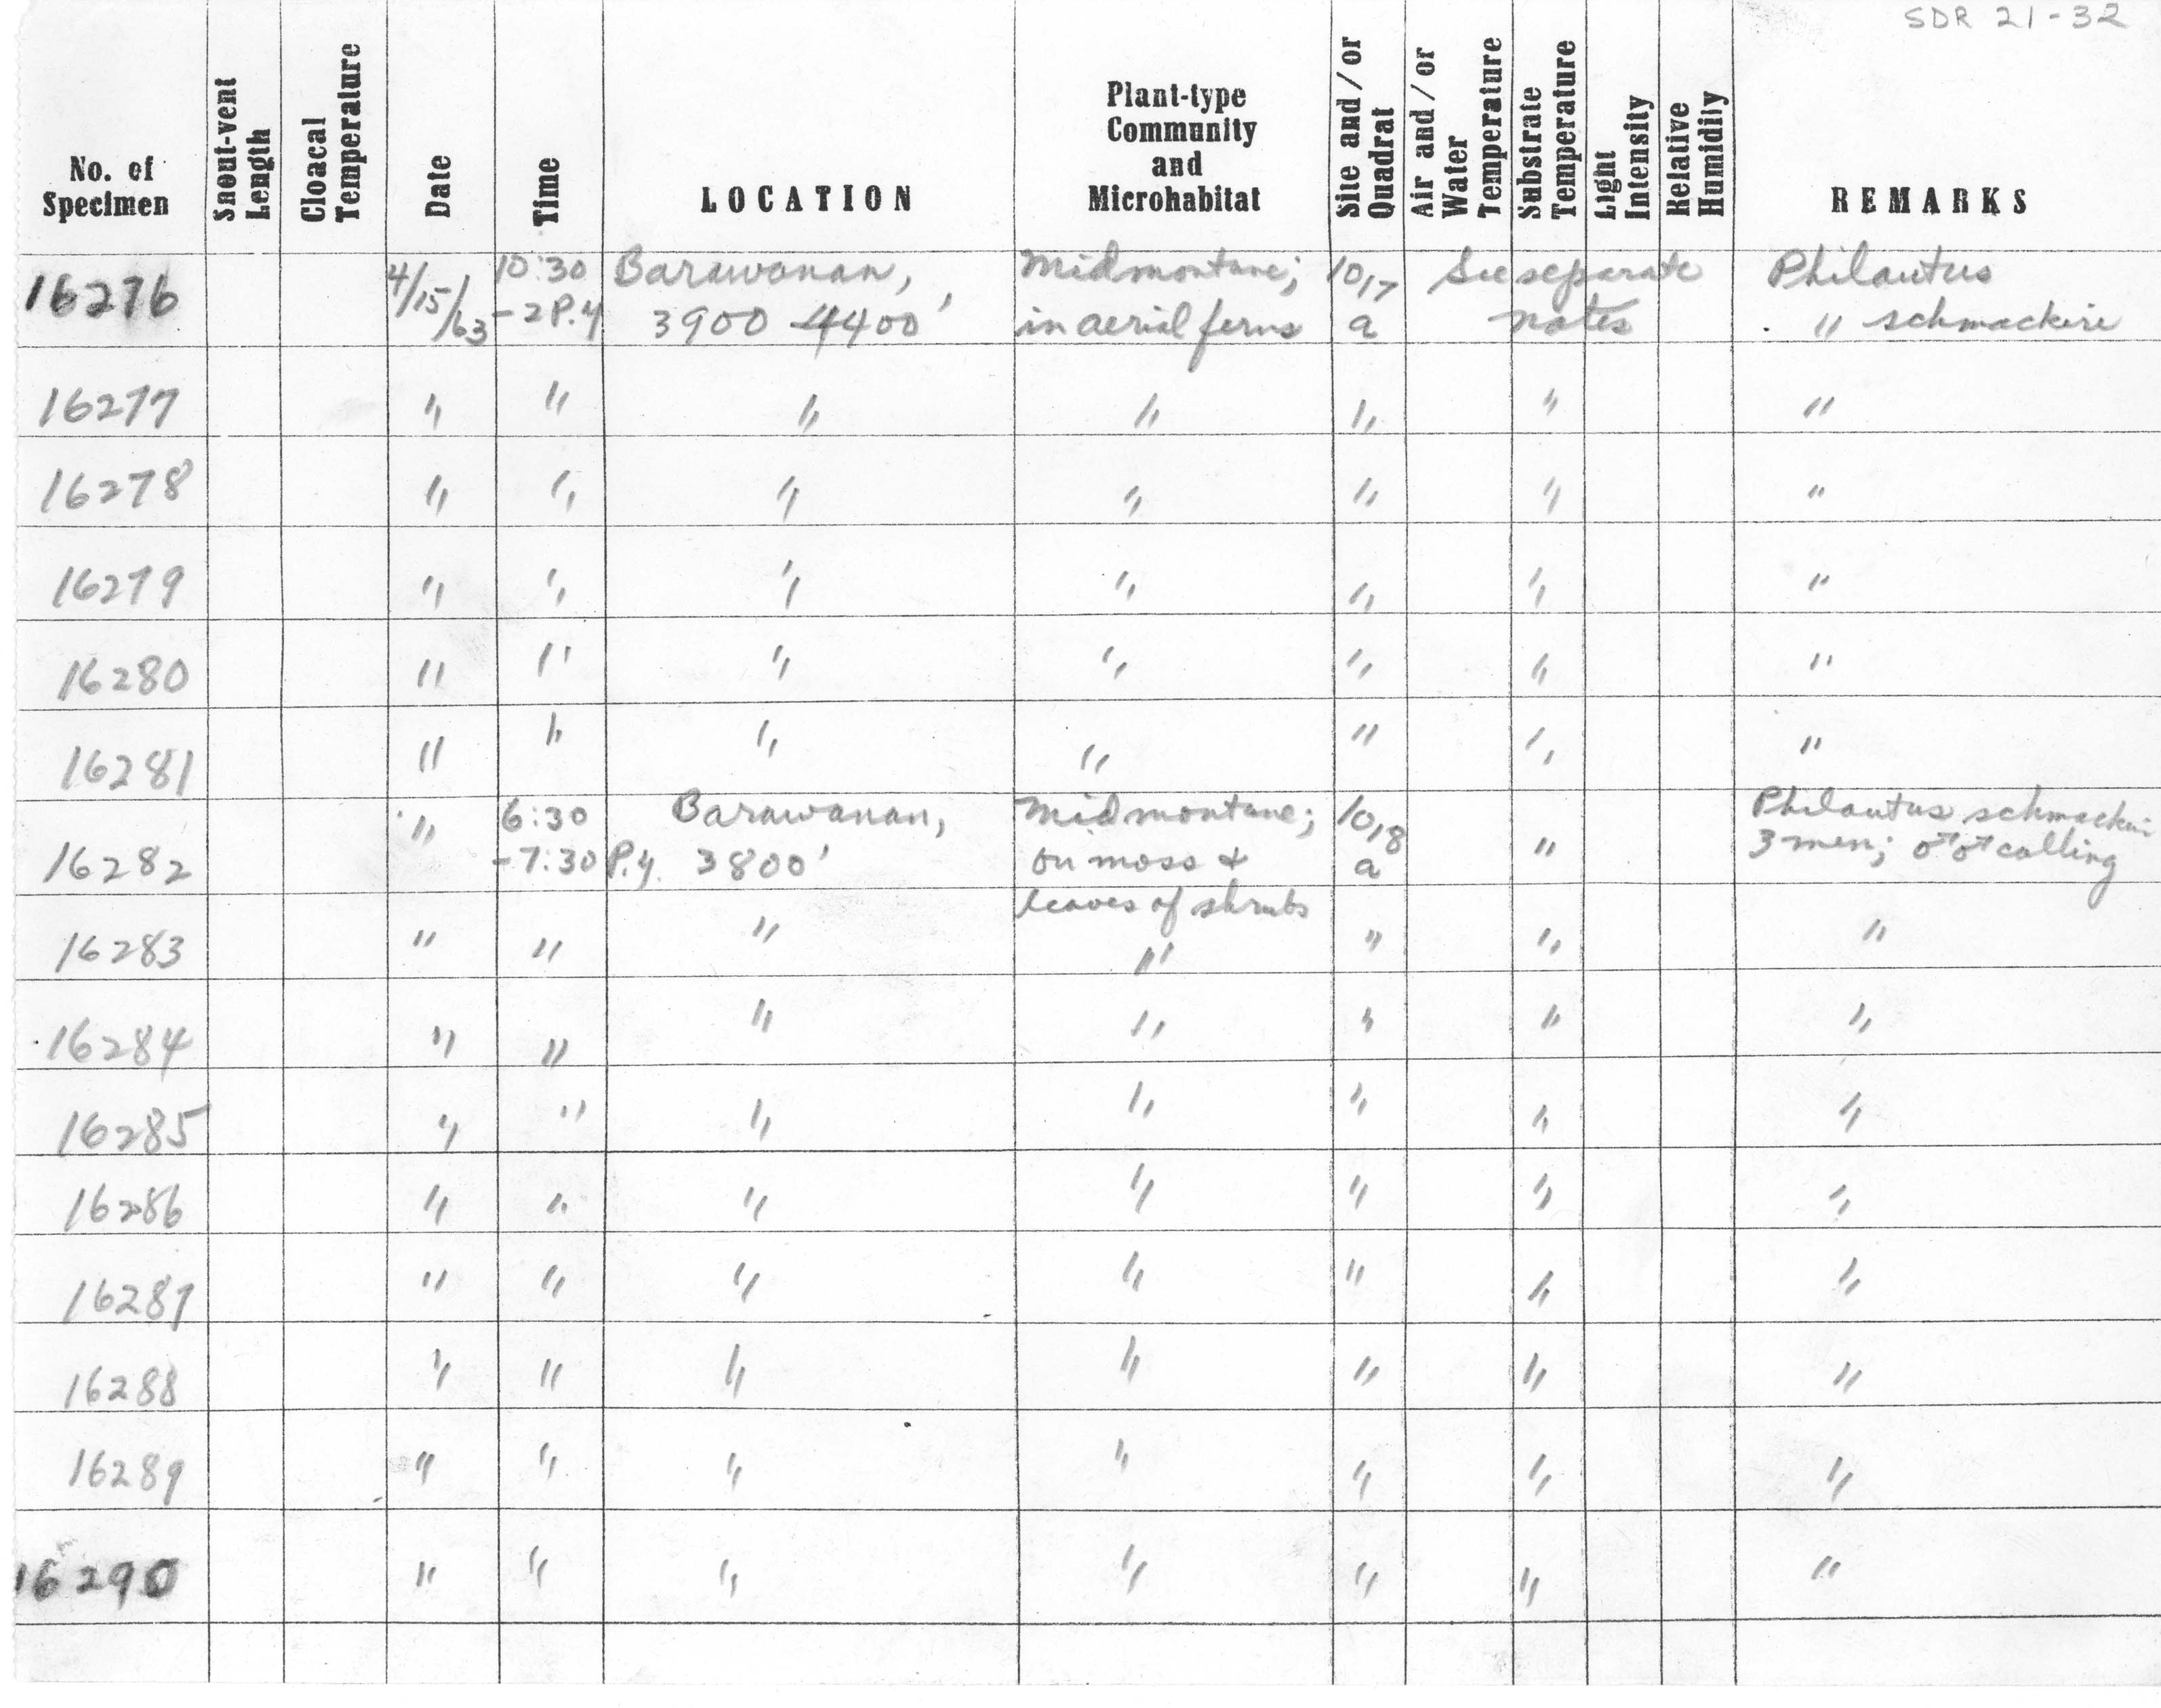 SDR 21-32
No. of Specimen
Snout-vent Length
Cloacal Temperature
Date
Time
LOCATION
Plant-type Community and Microhabitat
Site and/or Quadrat
Air and/or Water Temperature
Substrate Temperature
Light Intensity
Relative Humidity
REMARKS
16276 4/15/63 10:30 Barawanan, Midmontane; 10,17 See separate Philautus
-2 P.M 3900 4400' in aerial ferns a notes " schmackeri
16277 " " " " " " "
16278 " " " " " " "
16279 " " " " " " "
16280 " " " " " " "
16281 " " " " " " "
16282 " 6:30 Barawanan, Midmontane; 10,18 " Philautus schmackeri
-7:30 P.M. 3800' on moss & a 3 men; ♂♂ calling
leaves of shrubs
16283 " " " " " " "
16284 " " " " " " "
16285 " " " " " " "
16286 " " " " " " "
16287 " " " " " " "
16288 " " " " " " "
16289 " " " " " " "
16290 " " " " " " "